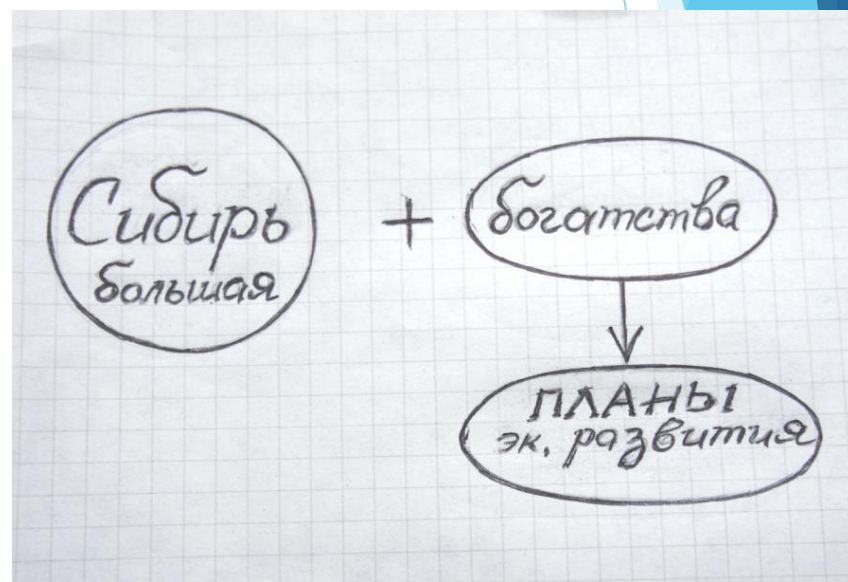 Сибирь
большая
+
богатства
ПЛАНЫ
эк. развития